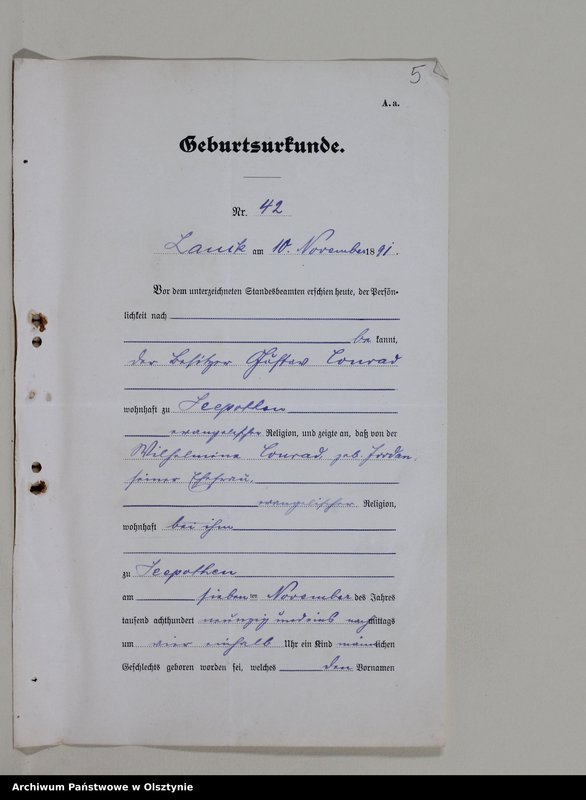 5
A. a.
Geburtsurkunde.
Nr. 42
Lauck am 10. November 1891.
Vor dem unterzeichneten Standesbeamten erschien heute, der Persön-
lichkeit nach
be kannt,
der Besitzer Gustav Conrad
wohnhaft zu Seepothen
evangelischer Religion, und zeigte an, daß von der
Wilhelmine Conrad geb. Jordan,
seiner Ehefrau,
evangelischer Religion,
wohnhaft bei ihm
zu Seepothen
am sieben ten November des Jahres
tausend achthundert neunzig und eins nachmittags
um vier einhalb Uhr ein Kind männlichen
Geschlechts geboren worden sei, welches den Vornamen
Archiwum Państwowe w Olsztynie